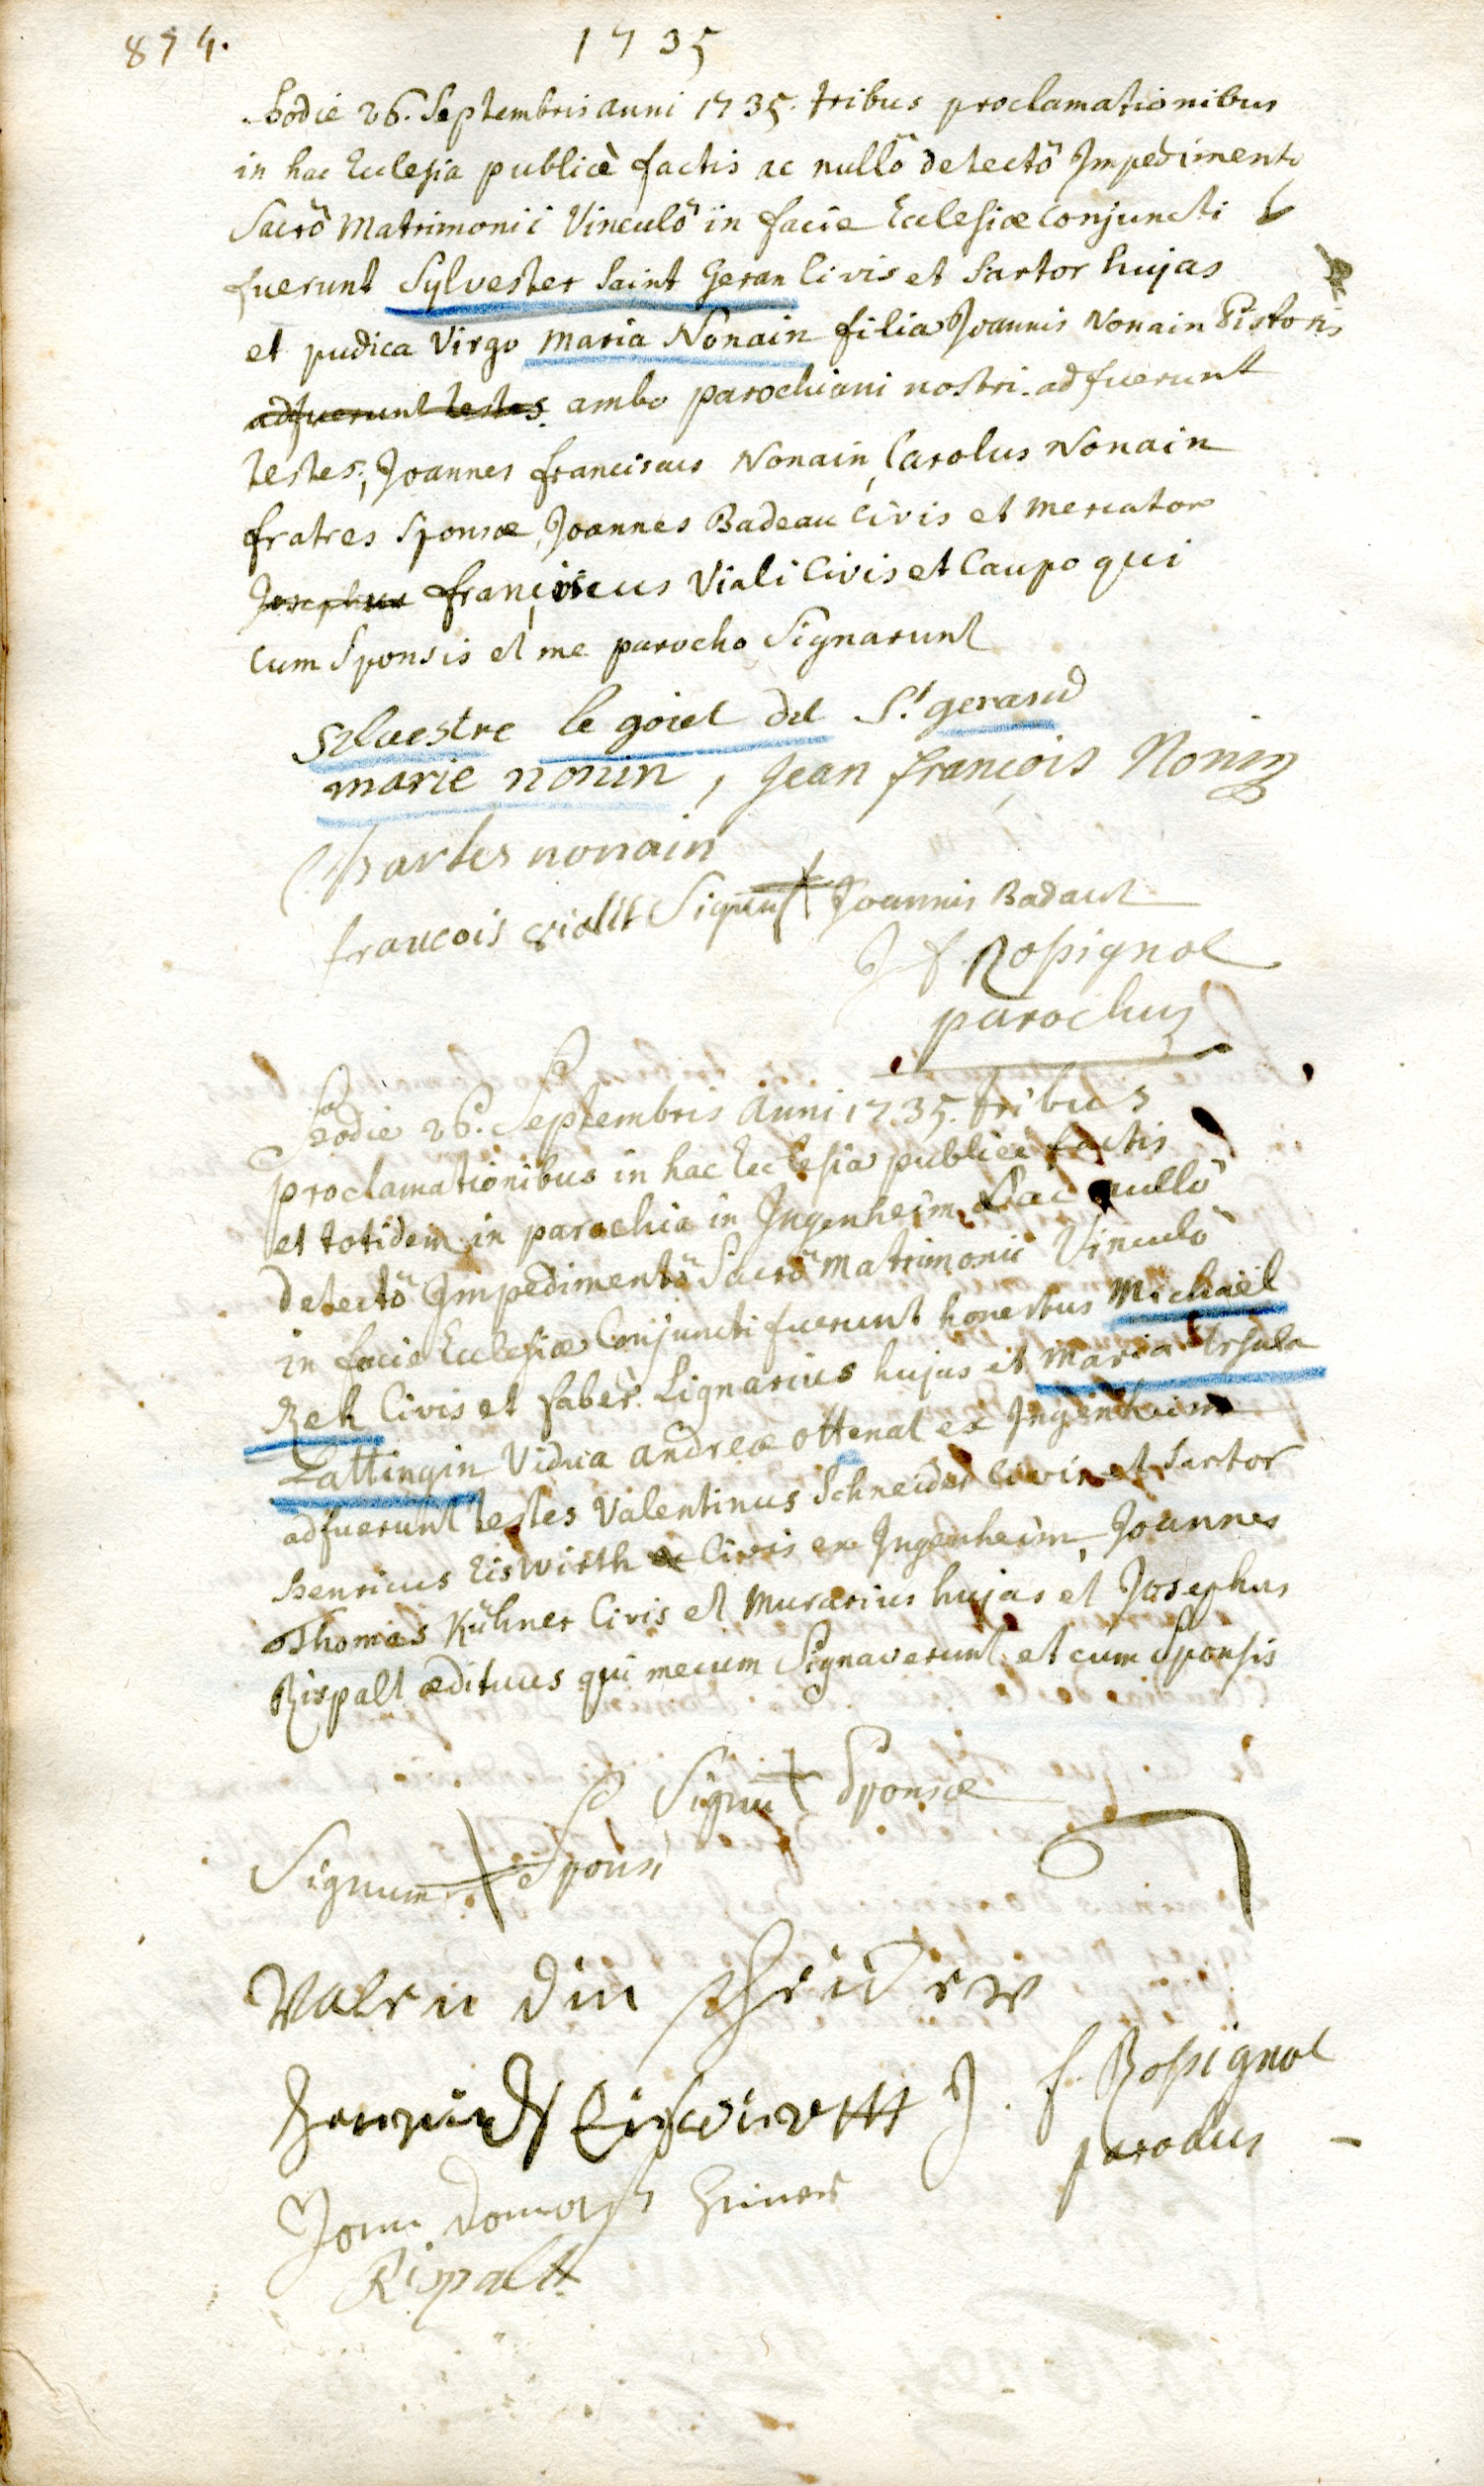 874.
1735
hodie 26. Septembris anni 1735. tribus proclamationibus
in hac Ecclesia publicè factis ac nullô detectô Impedimento
Sacrô Matrimonii Vinculô in facie Ecclesiæ Conjuncti
fuerunt Sylvester Saint Geran Civis et Sartor hujas
et pudica Virgo Maria Nonain filia Joannis Nonain Pistoris
adfuerunt testes ambo parochiani nostri. adfuerunt
testes, Joannes franciscus Nonain, Carolus Nonain
fratres Sponsæ, Joannes Badeau Civis et Mercator
Josephus franciscus Viali Civis et Caupo qui
Cum Sponsis et me parocho Signarunt
Silvestre le goiet dit St. gerand
marie nonin, Jean françois Nonin
Charles nonain
francois vialit Signum Joannis Badaut
J f. Rossignol
parochus
hodie 26. Septembris Anni 1735. tribus
proclamationibus in hac Ecclesia publice factis
et totidem in parochia in Ingenheim ac nullô
detectô Impedimentô Sacrô Matrimonii Vinculô
in facie Ecclesiæ Conjuncti fuerunt honestus Michaël
Reh Civis et faber Lignarius hujas et Maria Ursula
Lattingin Vidua Andreæ Ottenat ex Ingenheim
adfuerunt testes Valentinus Schneider Civis et Sartor
Henricus Eiswirth Civis ex Ingenheim, Joannes
Thomas Kühner Civis et Murarius hujas et Josephus
Rispalt ædituus qui mecum Signaverunt et cum Sponsis
Signum Sponsæ
Signum Sponsi
Valendin
J. f. Rossignol
parochus
Rispalt